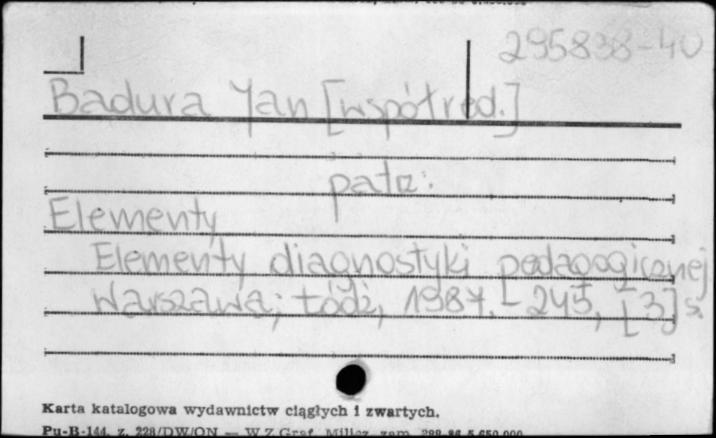 295838-40
Badura Jan [współred.]
patz:
Elementy
Elementy diagnostyki pedagogicznej
Warszawa; Łódź, 1987. - 245, [3] s.
Karta katalogowa wydawnictw ciągłych i zwartych.
Pu-B-144, z. 228/DW/ON — W.Z.Graf. Milicz zam. 299-86 5.650.000